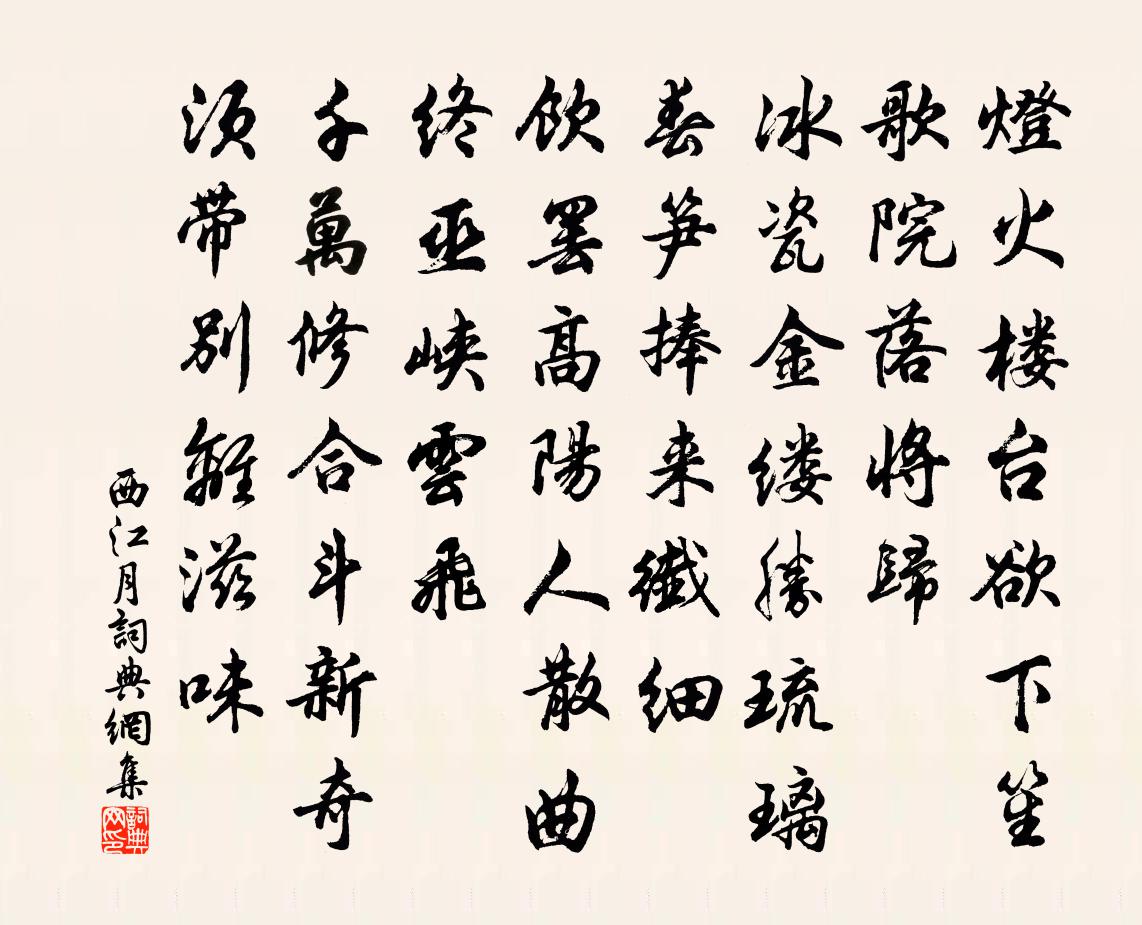 燈火楼台欲下笙
歌院落將歸
冰瓷金缕勝琉璃
春笋捧来纖細
飲罢高陽人散曲
終巫峡雲飛
千萬修合斗新奇
须带別離滋味
西江月詞典網集
詞典网印